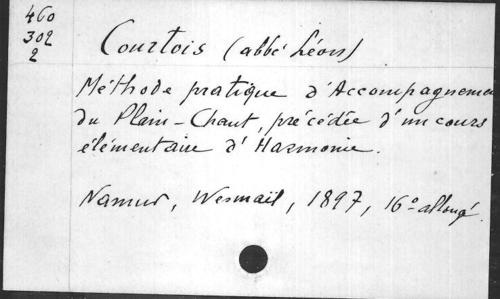 460
302
2
Courtois (abbé Léon)
Méthode pratique d'Accompagneme
du Plain-Chant, précédée d'un cours
élémentaire d'Harmonie.
Namur, Wesmaël, 1897, 16° allongé.